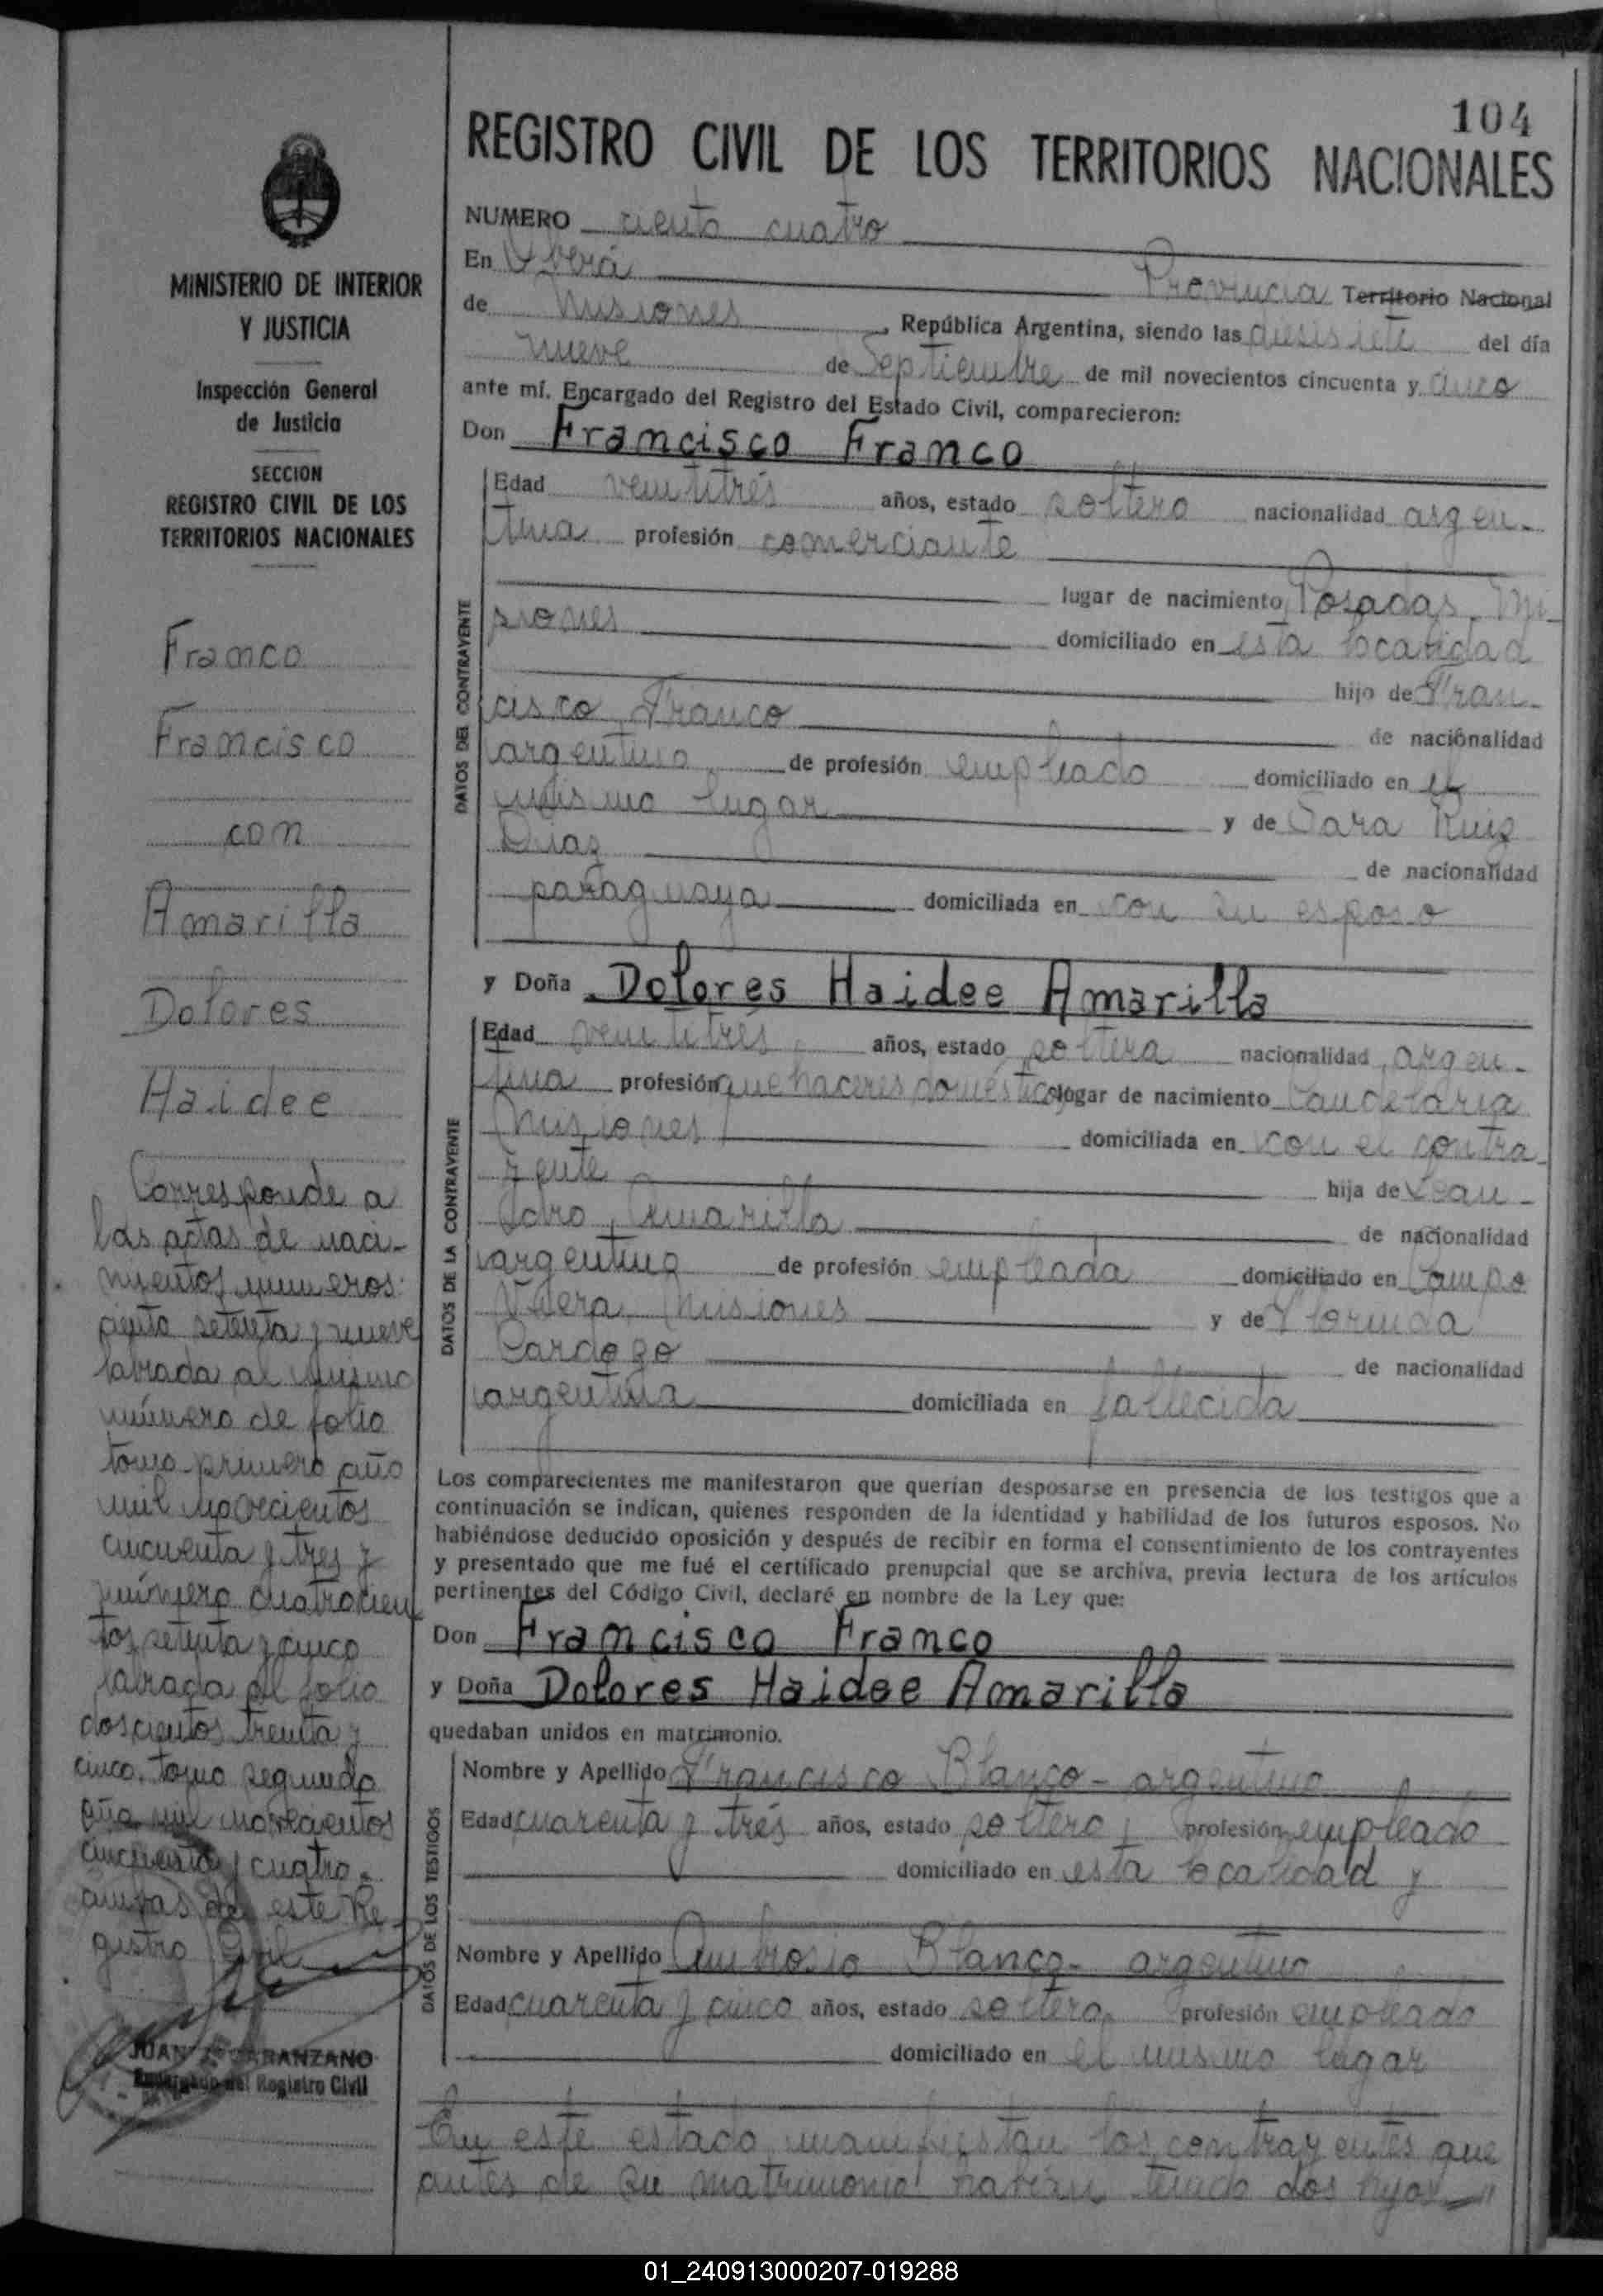 104
REGISTRO CIVIL DE LOS TERRITORIOS NACIONALES
NUMERO ciento cuatro
En Oberá Provincia Territorio Nacional
de Misiones, República Argentina, siendo las diesisiete del día
nueve de Septiembre de mil novecientos cincuenta y cinco
ante mí, Encargado del Registro del Estado Civil, comparecieron:
Don Francisco Franco
DATOS DEL CONTRAYENTE
Edad veintitrés años, estado soltero nacionalidad argen-
tina profesión comerciante
lugar de nacimiento Posadas, Mi-
siones domiciliado en esta localidad
hijo de Fran-
cisco Franco de nacionalidad
argentino de profesión empleado domiciliado en el
mismo lugar y de Sara Ruiz
Diaz de nacionalidad
paraguaya domiciliada en con su esposo
y Doña Dolores Haidee Amarilla
DATOS DE LA CONTRAYENTE
Edad veintitrés años, estado soltera nacionalidad argen-
tina profesión quehaceres domésticos lugar de nacimiento Candelaria
Misiones domiciliada en con el contra-
yente hija de Lean-
dro Amarilla de nacionalidad
argentina de profesión empleada domiciliado en Campo
Viera, Misiones y de Florinda
Cardozo de nacionalidad
argentina domiciliada en fallecida
Los comparecientes me manifestaron que querían desposarse en presencia de los testigos que a
continuación se indican, quienes responden de la identidad y habilidad de los futuros esposos. No
habiéndose deducido oposición y después de recibir en forma el consentimiento de los contrayentes
y presentado que me fué el certificado prenupcial que se archiva, previa lectura de los artículos
pertinentes del Código Civil, declaré en nombre de la Ley que:
Don Francisco Franco
y Doña Dolores Haidee Amarilla
quedaban unidos en matrimonio.
DATOS DE LOS TESTIGOS
Nombre y Apellido Francisco Blanco - argentino
Edad cuarenta y trés años, estado soltero, profesión empleado
domiciliado en esta localidad y
Nombre y Apellido Ambrosio Blanco - argentino
Edad cuarenta y cinco años, estado soltero, profesión empleado
domiciliado en el mismo lugar
En este estado manifiestan los contrayentes que
antes de su matrimonio habían tenido dos hijos
MINISTERIO DE INTERIOR
Y JUSTICIA
Inspección General
de Justicia
SECCION
REGISTRO CIVIL DE LOS
TERRITORIOS NACIONALES
Franco
Francisco
con
Amarilla
Dolores
Haidee
Corresponde a
las actas de naci-
mientos números:
ciento setenta y nueve
labrada al mismo
número de folio
tomo primero año
mil novecientos
cincuenta y tres y
número cuatrocien
tos setenta y cinco
labrada al folio
doscientos treinta y
cinco, tomo segundo
año mil novecientos
cincuenta y cuatro -
ambas de este Re-
gistro Civil
JUAN CARANZANO
Encargado del Registro Civil
01_240913000207-019288